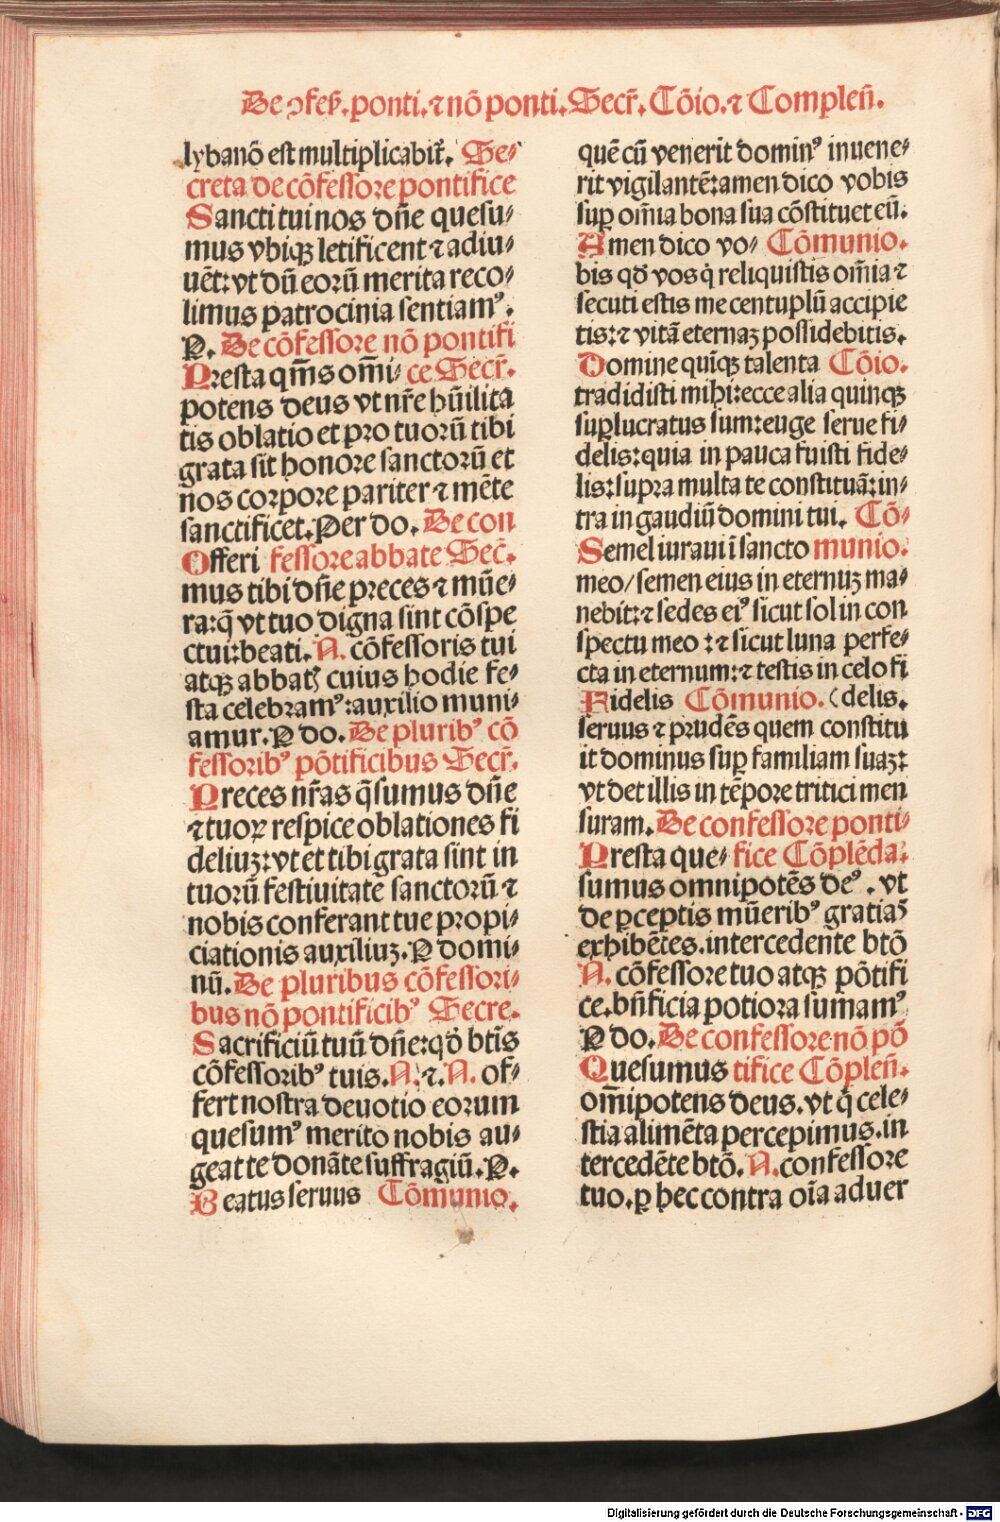 De ↄfeſſ. ponti. ⁊ nō ponti. Secr̄. Cōio. ⁊ Complen̄.
lybanō eſt multiplicabit̄. Se⸗
creta de cōfeſſore pontifice
Sancti tui nos dn̄e queſu⸗
mus vbiqꝫ letificent ⁊ adiu⸗
uēt: vt dū eorū merita reco⸗
limus patrocinia ſentiamꝰ.
P. De cōfeſſore nō pontifi
Preſta qm̄s om̄i⸗ ce Secr̄.
potens deus vt nr̄e hūilita
tis oblatio et pro tuorū tibi
grata ſit honore ſanctorū et
nos corpore pariter ⁊ mēte
ſanctificet. Per do. De con
Offeri feſſore abbate Sec̄.
mus tibi dn̄e preces ⁊ mūe⸗
ra: q̄ vt tuo digna ſint cōſpe
ctui: beati. N. cōfeſſoris tui
atqꝫ abbatꝭ cuius hodie fe⸗
ſta celebramꝰ: auxilio muni⸗
amur. P do. De pluribꝰ cō
feſſoribꝰ pōtificibus Secr̄.
Preces nr̄as q̄ſumus dn̄e
⁊ tuoꝝ reſpice oblationes fi
deliuꝫ: vt et tibi grata ſint in
tuorū feſtiuitate ſanctorū ⁊
nobis conferant tue propi⸗
ciationis auxiliuꝫ. P domi⸗
nū. De pluribus cōfeſſori⸗
bus nō pontificibꝰ Secre.
Sacrificiū tuū dn̄e: qd̄ bt̄is
cōfeſſoribꝰ tuis. N. ⁊. N. of⸗
fert noſtra deuotio eorum
queſumꝰ merito nobis au⸗
geat te donāte ſuffragiū. P.
Beatus ſeruus Cōmunio.
quē cū venerit dominꝰ inuene⸗
rit vigilantē: amen dico vobis
ſuꝑ om̄ia bona ſua cōſtituet eū.
Amen dico vo⸗ Cōmunio.
bis qd̄ vos q̇ reliquiſtis om̄ia ⁊
ſecuti eſtis me centuplū accipie
tis: ⁊ vitā eternaꝫ poſſidebitis.
Domine quīqꝫ talenta Cōio.
tradidiſti mihi: ecce alia quinqꝫ
ſuꝑlucratus ſum: euge ſerue fi⸗
delis: quia in pauca fuiſti fide⸗
lis: ſupra multa te conſtituā: in⸗
tra in gaudiū domini tui. Cō⸗
Semel iuraui ī ſancto munio.
meo/ ſemen eius in eternuꝫ ma⸗
nebit: ⁊ ſedes eiꝰ ſicut ſol in con
ſpectu meo: ⁊ ſicut luna perfe⸗
cta in eternum: ⁊ teſtis in celo fi
Fidelis Cōmunio. (delis.
ſeruus ⁊ prudēs quem conſtitu
it dominus ſuꝑ familiam ſuaꝫ:
vt det illis in tēpore tritici men
ſuram. De confeſſore ponti⸗
Preſta que⸗ fice Cōplēda.
ſumus omnipotēs deꝰ. vt
de ꝑceptis mūeribꝰ gratias
exhibētes. intercedente btō
N. cōfeſſore tuo atqꝫ pōtifi
ce. bn̄ficia potiora ſumamꝰ
P do. De confeſſore nō pō
Queſumus tifice Cōplen̄.
om̄ipotens deus. vt q̇ cele⸗
ſtia alimēta percepimus. in
tercedēte btō. N. confeſſore
tuo. ꝑ hec contra oīa aduer
Digitalisierung gefördert durch die Deutsche Forschungsgemeinschaft - DFG